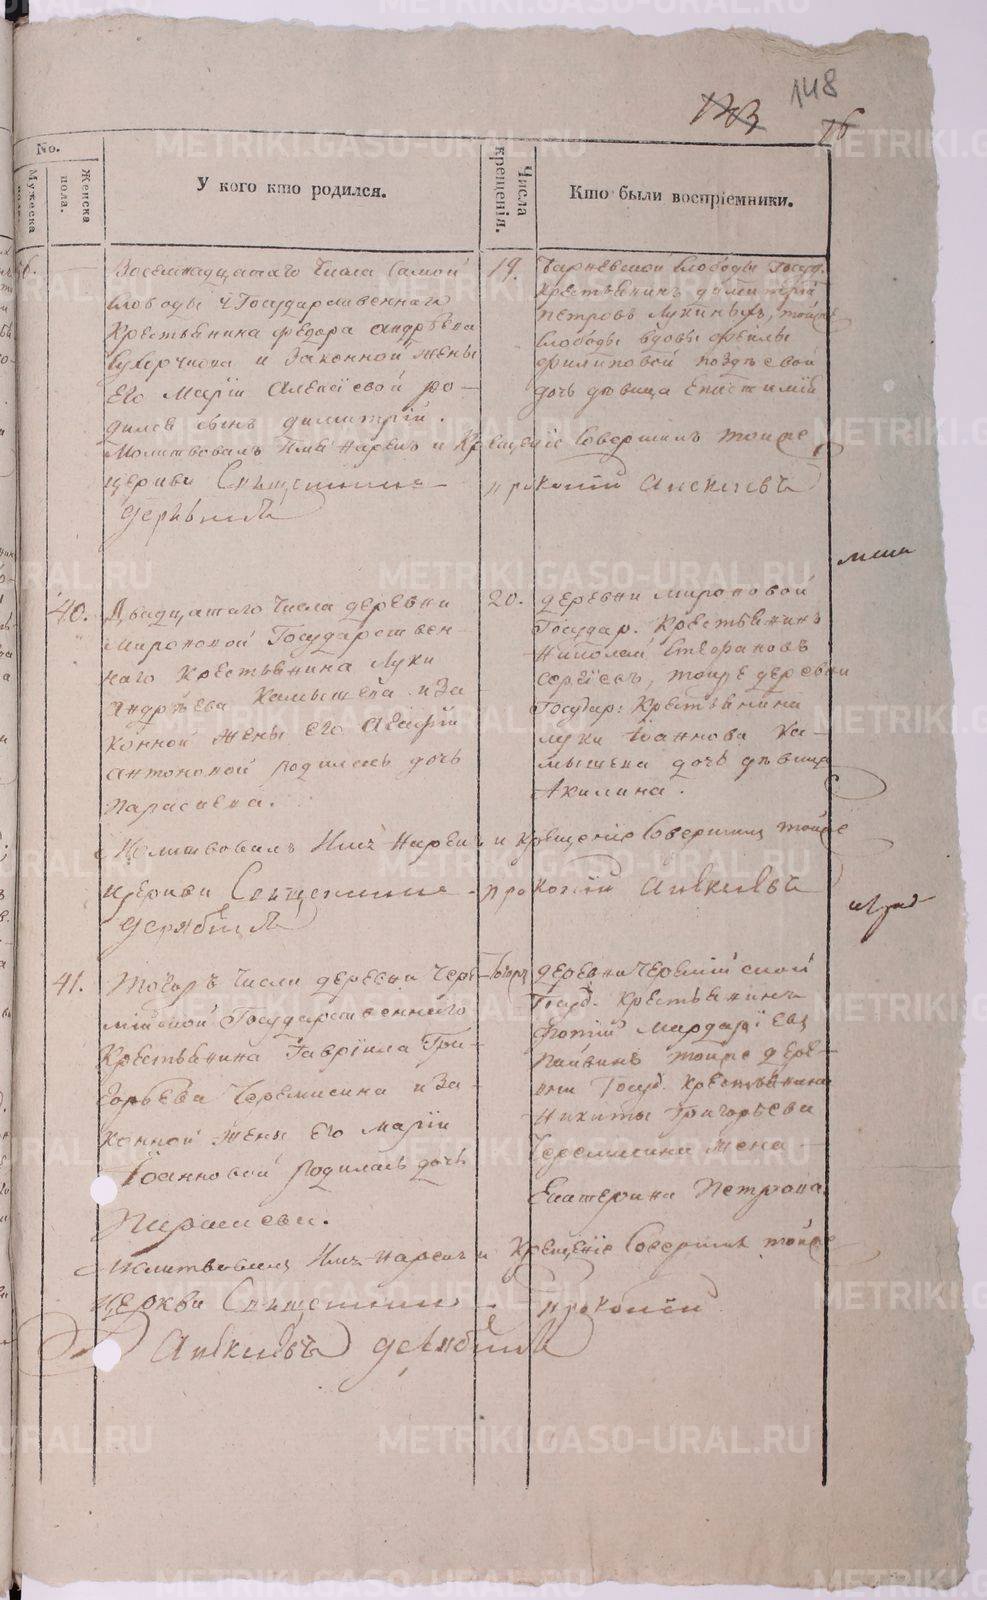 148
76
No.
Мужеска пола.
Женска пола.
У кого кто родился.
Числа крещенія.
Кто были воспріемники.
Восемнадцатаго числа самой
слободы Государственнаго
Крестьянина Федора Андрѣева
и законной жены
его Маріи Алексіевой ро-
дился сынъ Димитрій.
Молитвовалъ Имя нарекъ и Крещеніе совершилъ тойже
церкви Священникъ Прокопій Алексіевъ
Дерябинъ
19.
слободы Госуд.
Крестьянинъ Димитрій
Петровъ Лукиныхъ, тойже
слободы вдовы
Филиповой
дочь дѣвица Епистимія
40.
Двадцатаго числа деревни
Мироновой Государствен-
наго Крестьянина Луки
Андрѣева Камышева и за
конной жены его Агафіи
Антоновой родилась дочь
Параскева.
Молитвовалъ Имя Нарекъ и крещеніе совершилъ тойже
церкви Священникъ Прокопій Алексіевъ
Дерябинъ
20.
деревни Мироновой
Государ. Крестьянинъ
Николай Стефановъ
Сергіевъ, тойже деревни
Государ: Крестьянина
Луки Іоаннова Ка-
мышева дочь дѣвица
Акилина.
41.
Тогожъ числа деревни Чере-
мійской Государственнаго
Крестьянина Гавріила Гри-
горьева Черемисина и за-
конной жены его Маріи
Іоанновой родилась дочь
Параскева.
Молитвовалъ Имя нарекъ и Крещеніе совершилъ тойже
церкви Священникъ Прокопій
Алексіевъ Дерябинъ
Тогожъ
деревни Черемійской
Госуд. Крестьянинъ
Фотій Мардаріевъ
Пайвинъ тойже дере-
вни Госуд. Крестьянина
Никиты Григорьева
Черемисина жена
Екатерина Петрова
METRIKI.GASO-URAL.RU